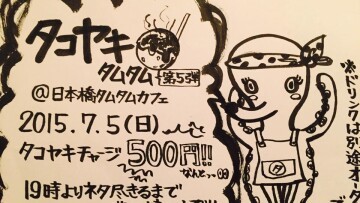 タコヤキ
タムタム 第5弾
@日本橋タムタムカフェ
2015.7.5(日)
タコヤキチャージ 500円!!
なんと
19時よりネタ尽きるまで
タ
※ドリンクは別途オーダ